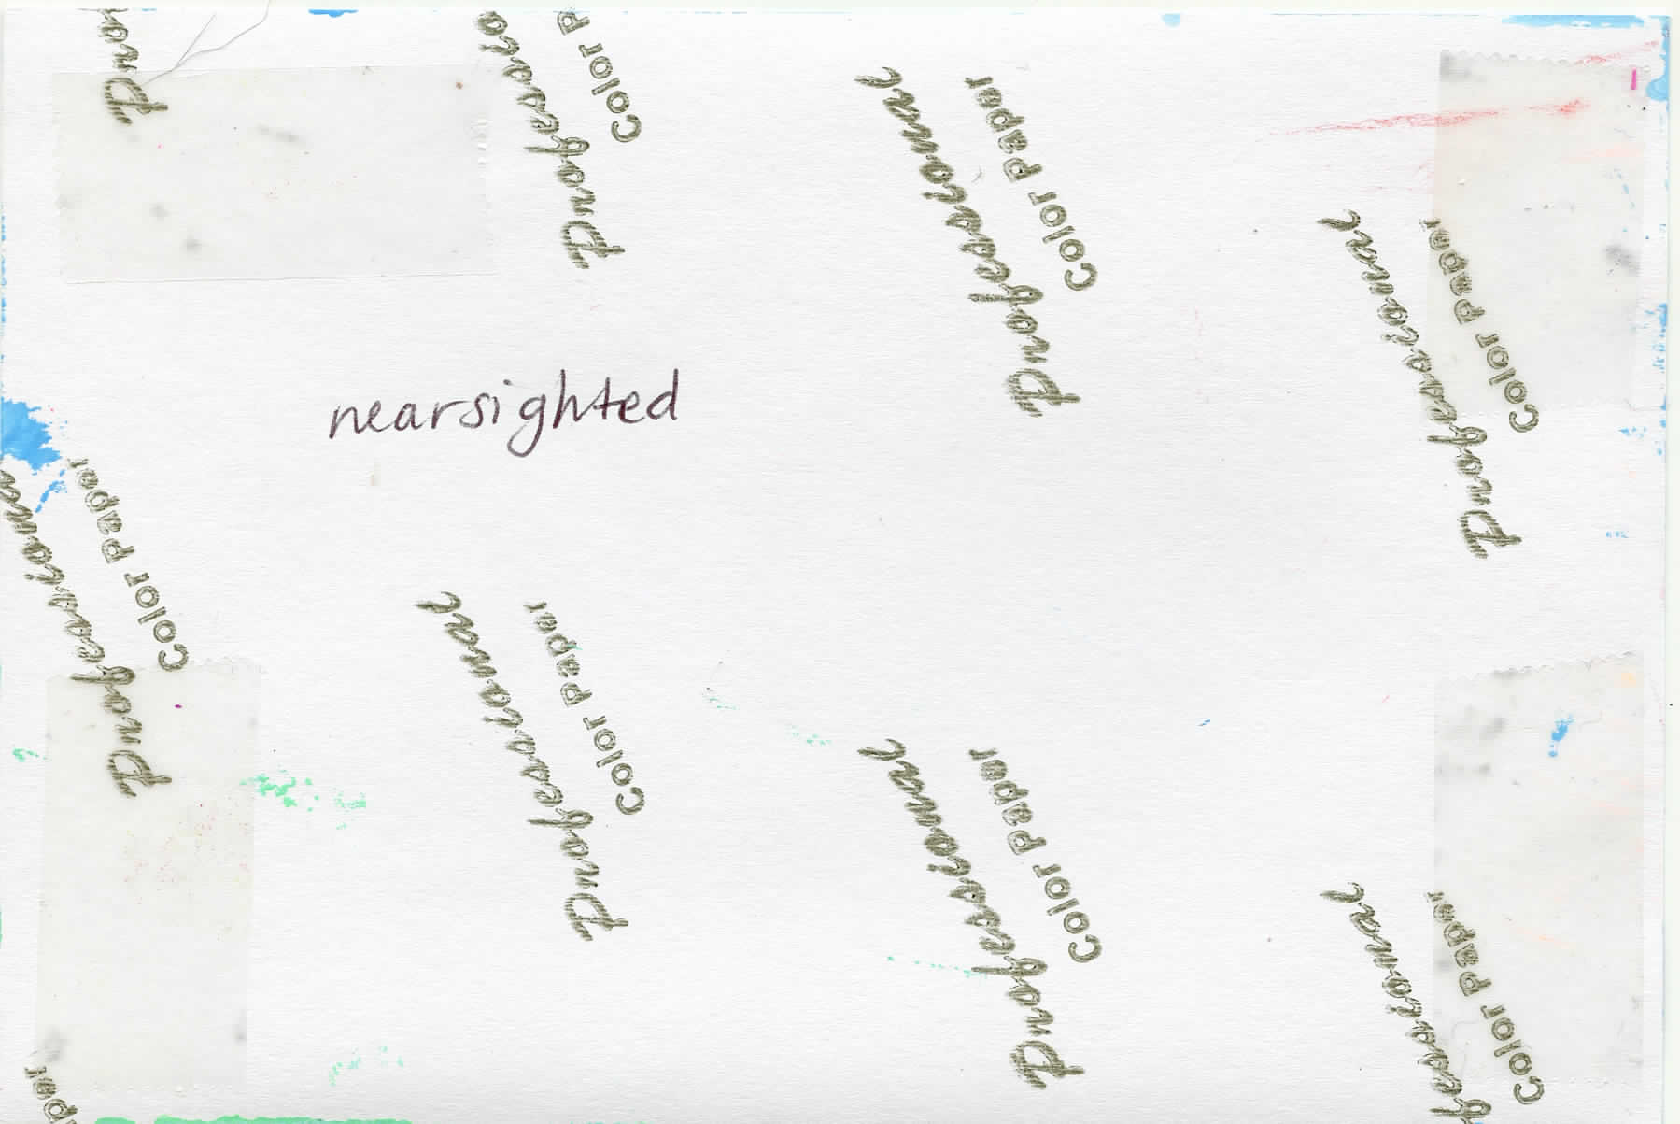 Pro
Professio
Color P
Professional
Color Paper
Professional
Color Paper
nearsighted
Professiona
Color Paper
Professional
Color Paper
Professional
Color Paper
fessional
Color Paper
aper